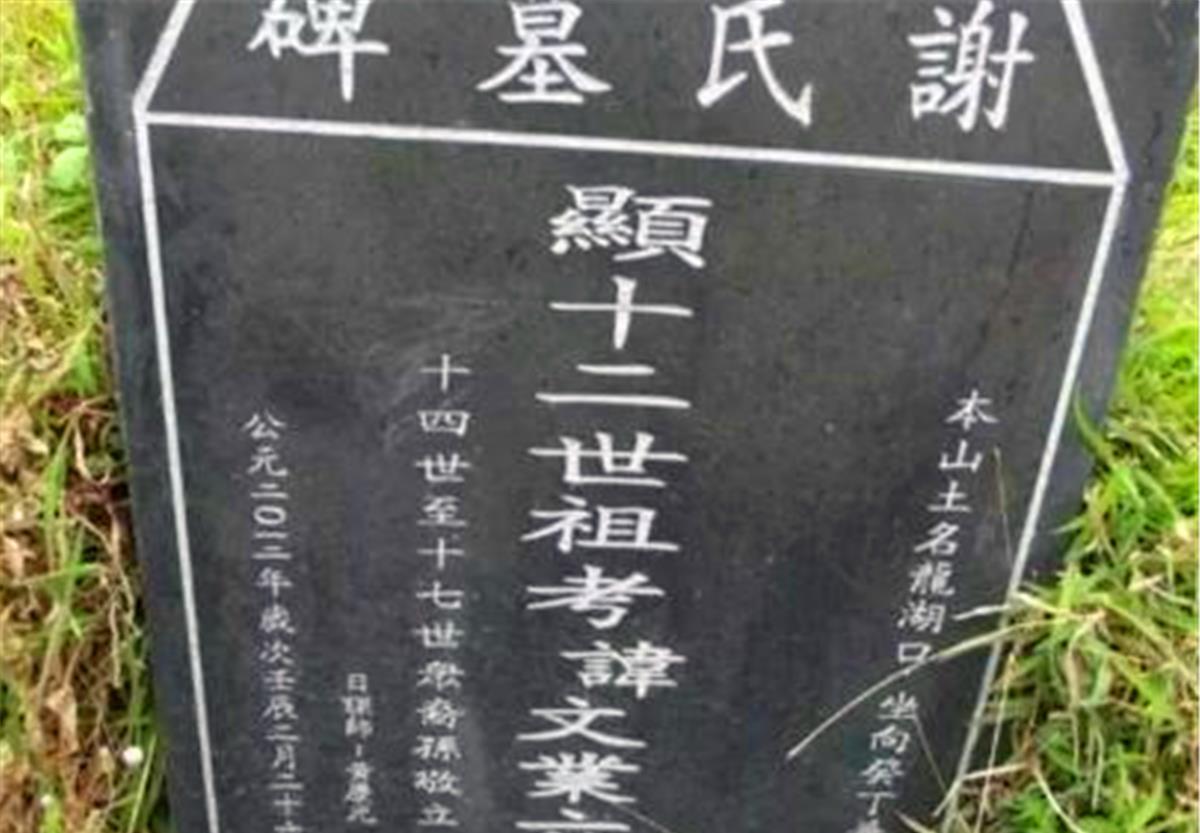 謝氏墓碑
本山土名龍湖口 坐向癸丁
顯十二世祖考諱文業
十四世至十七世衆裔孫敬立
日課師:黃
公元二〇一二年歲次壬辰二月二十